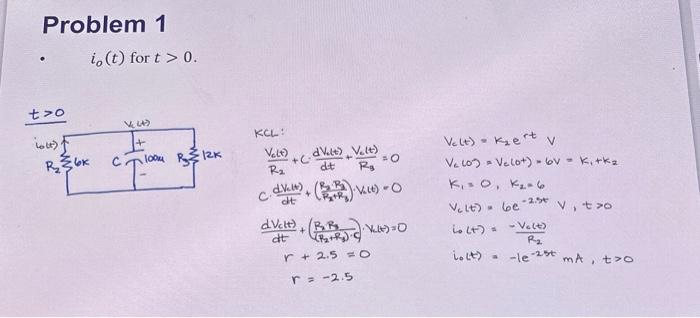 Problem 1
• i₀(t) for t > 0.
t>0
Vc(t)
i₀(t)↑
R₂ 6K C + - 100u R₃ 12K
KCL:
Vc(t)/R₂ + C · dVc(t)/dt + Vc(t)/R₃ = 0
C · dVc(t)/dt + (R₂·R₃/R₂+R₃) · Vc(t) = 0
dVc(t)/dt + (R₂·R₃/(R₂+R₃)·C) · Vc(t) = 0
r + 2.5 = 0
r = -2.5
Vc(t) = K₂e^rt V
Vc(0) = Vc(0+) = 6V = K₁+K₂
K₁ = 0, K₂ = 6
Vc(t) = 6e^-2.5t V, t>0
i₀(t) = -Vc(t)/R₂
i₀(t) = -1e^-2.5t mA, t>0